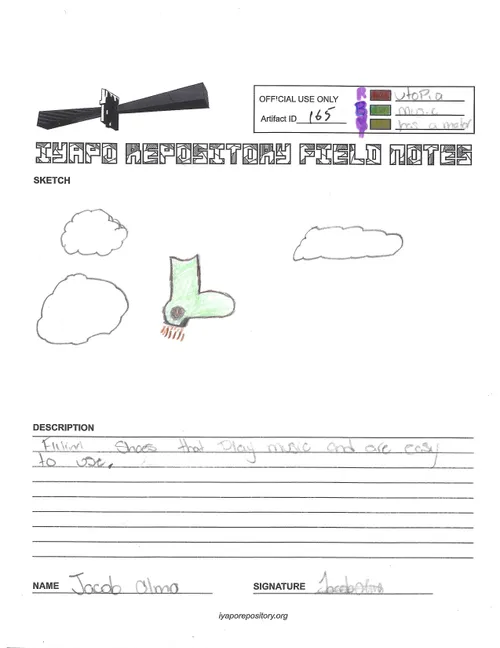 OFFICIAL USE ONLY
Artifact ID 165
R utopia
B music
has a motor
IYAPO REPOSITORY FIELD NOTES
SKETCH
DESCRIPTION
Shoes that Play music and are easy
to use.
NAME Jacob alma
SIGNATURE
iyaporepository.org